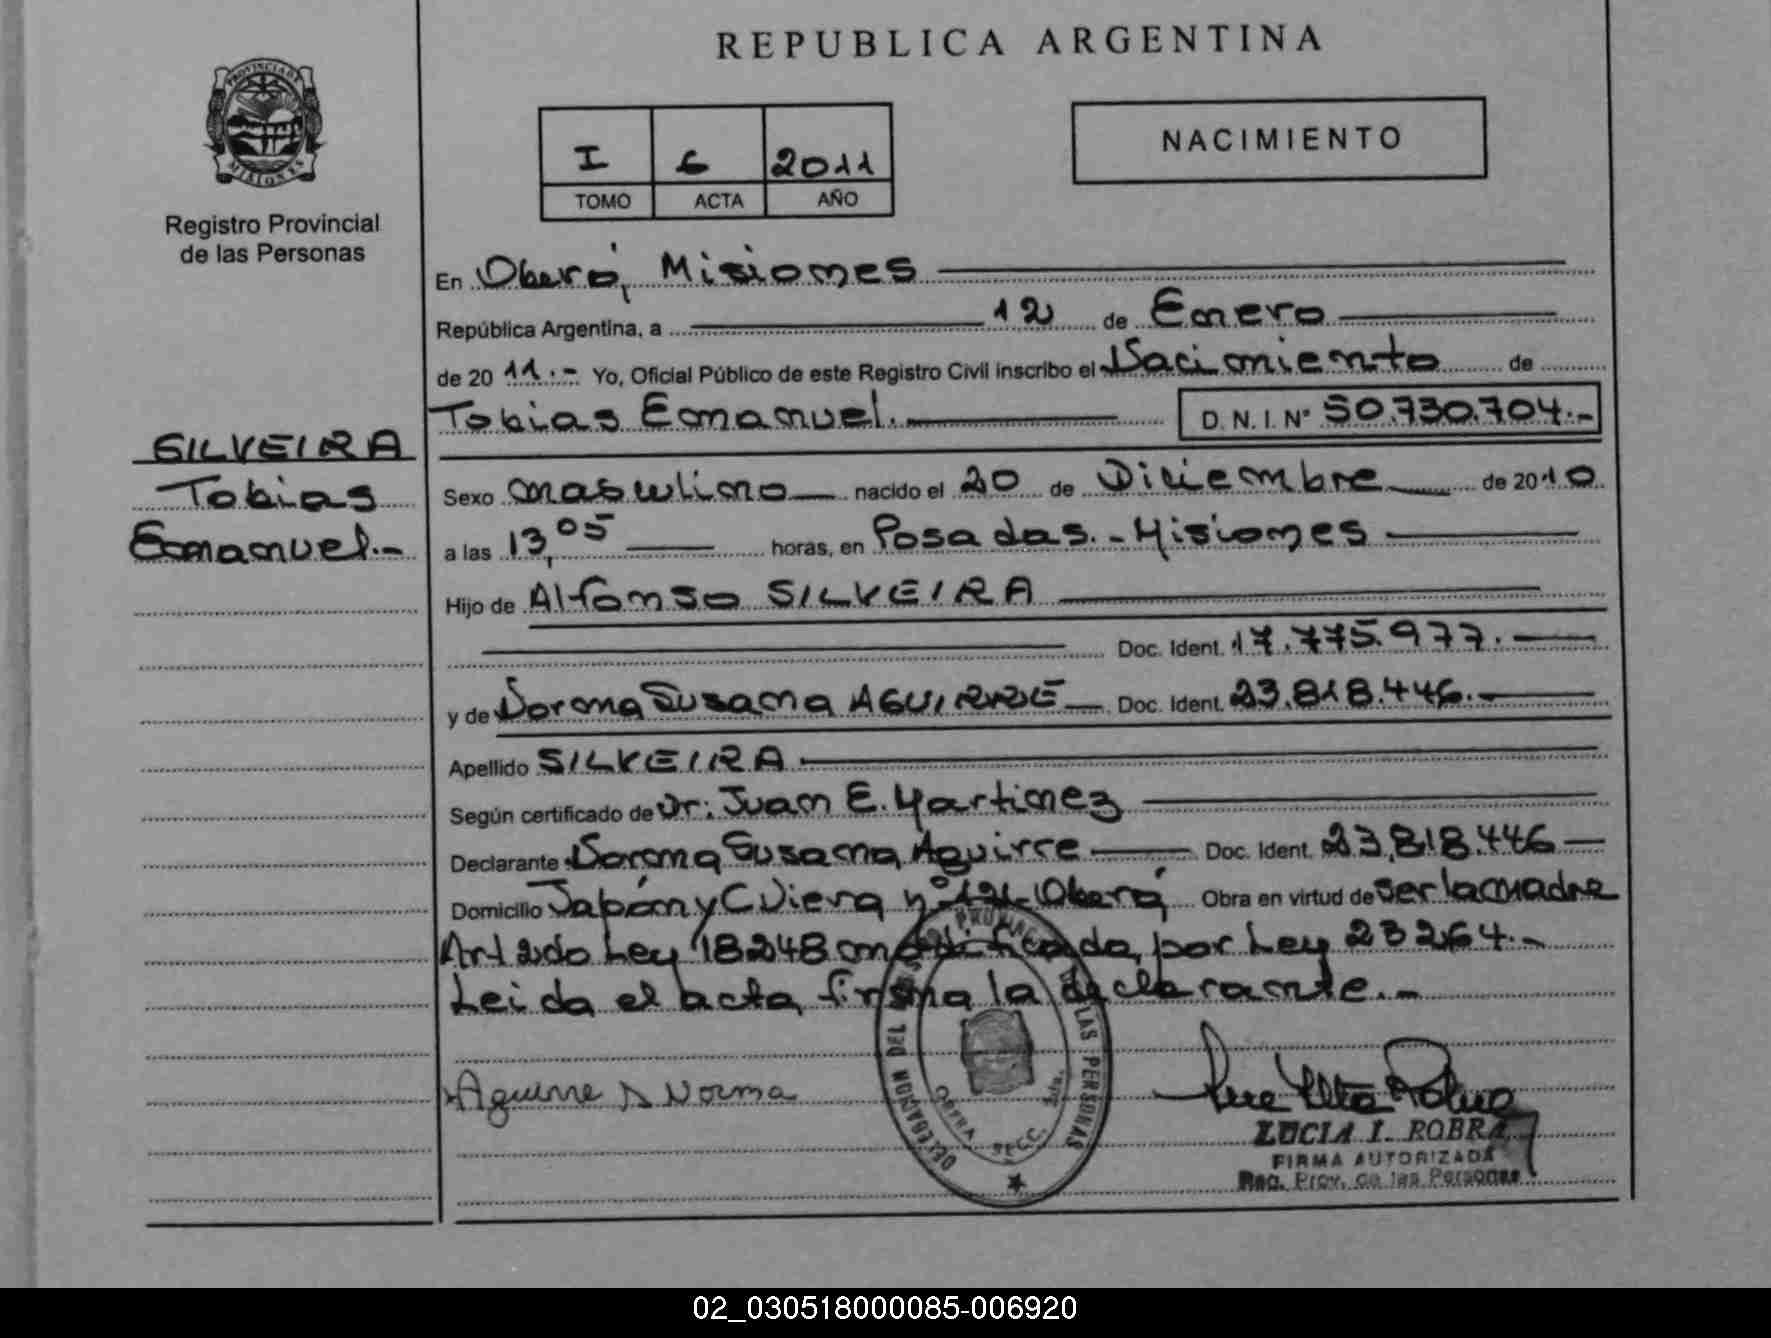 REPUBLICA ARGENTINA
PROVINCIA DE
MISIONES
Registro Provincial
de las Personas
I 6 2011
TOMO ACTA AÑO
NACIMIENTO
SILVEIRA
Tobias
Emanuel.-
En Oberá, Misiones
República Argentina, a 12 de Enero
de 2011.- Yo, Oficial Público de este Registro Civil inscribo el Nacimiento de
Tobias Emanuel. D. N. I. Nº 50.730.704.-
Sexo masculino nacido el 20 de Diciembre de 2010
a las 13,05 horas, en Posadas.-Misiones
Hijo de Alfonso SILVEIRA
Doc. Ident. 17.775.977.
y de Norma Susana AGUIRRE Doc. Ident. 23.818.446.
Apellido SILVEIRA
Según certificado de Dr: Juan E. Martinez
Declarante Norma Susana Aguirre Doc. Ident. 23.818.446
Domicilio Japón y C Viera nº 121- Oberá Obra en virtud de ser la madre
Art 2do Ley 18248 modificada por Ley 23264.-
Leida el acta firma la declarante.-
Aguirre S Norma
DELEGACION DEL REGISTRO PROVINCIAL DE LAS PERSONAS
OBERA SECC. 2da.
LUCIA I. ROBRA
FIRMA AUTORIZADA
Reg. Prov. de las Personas
02_030518000085-006920